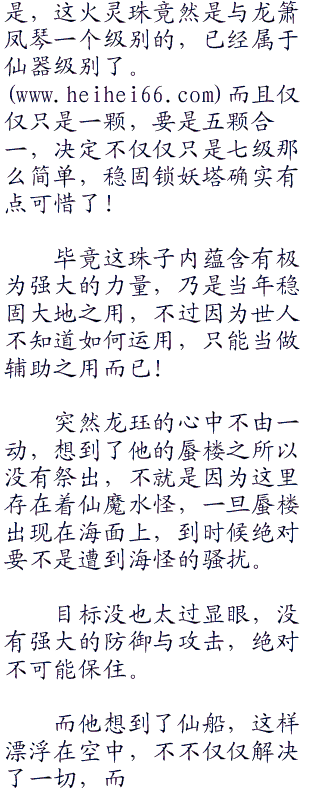 是，这火灵珠竟然是与龙箫
凤琴一个级别的，已经属于
仙器级别了。
(www.heihei66.com)而且仅
仅只是一颗，要是五颗合
一，决定不仅仅只是七级那
么简单，稳固锁妖塔确实有
点可惜了！
毕竟这珠子内蕴含有极
为强大的力量，乃是当年稳
固大地之用，不过因为世人
不知道如何运用，只能当做
辅助之用而已！
突然龙珏的心中不由一
动，想到了他的蜃楼之所以
没有祭出，不就是因为这里
存在着仙魔水怪，一旦蜃楼
出现在海面上，到时候绝对
要不是遭到海怪的骚扰。
目标没也太过显眼，没
有强大的防御与攻击，绝对
不可能保住。
而他想到了仙船，这样
漂浮在空中，不不仅仅解决
了一切，而